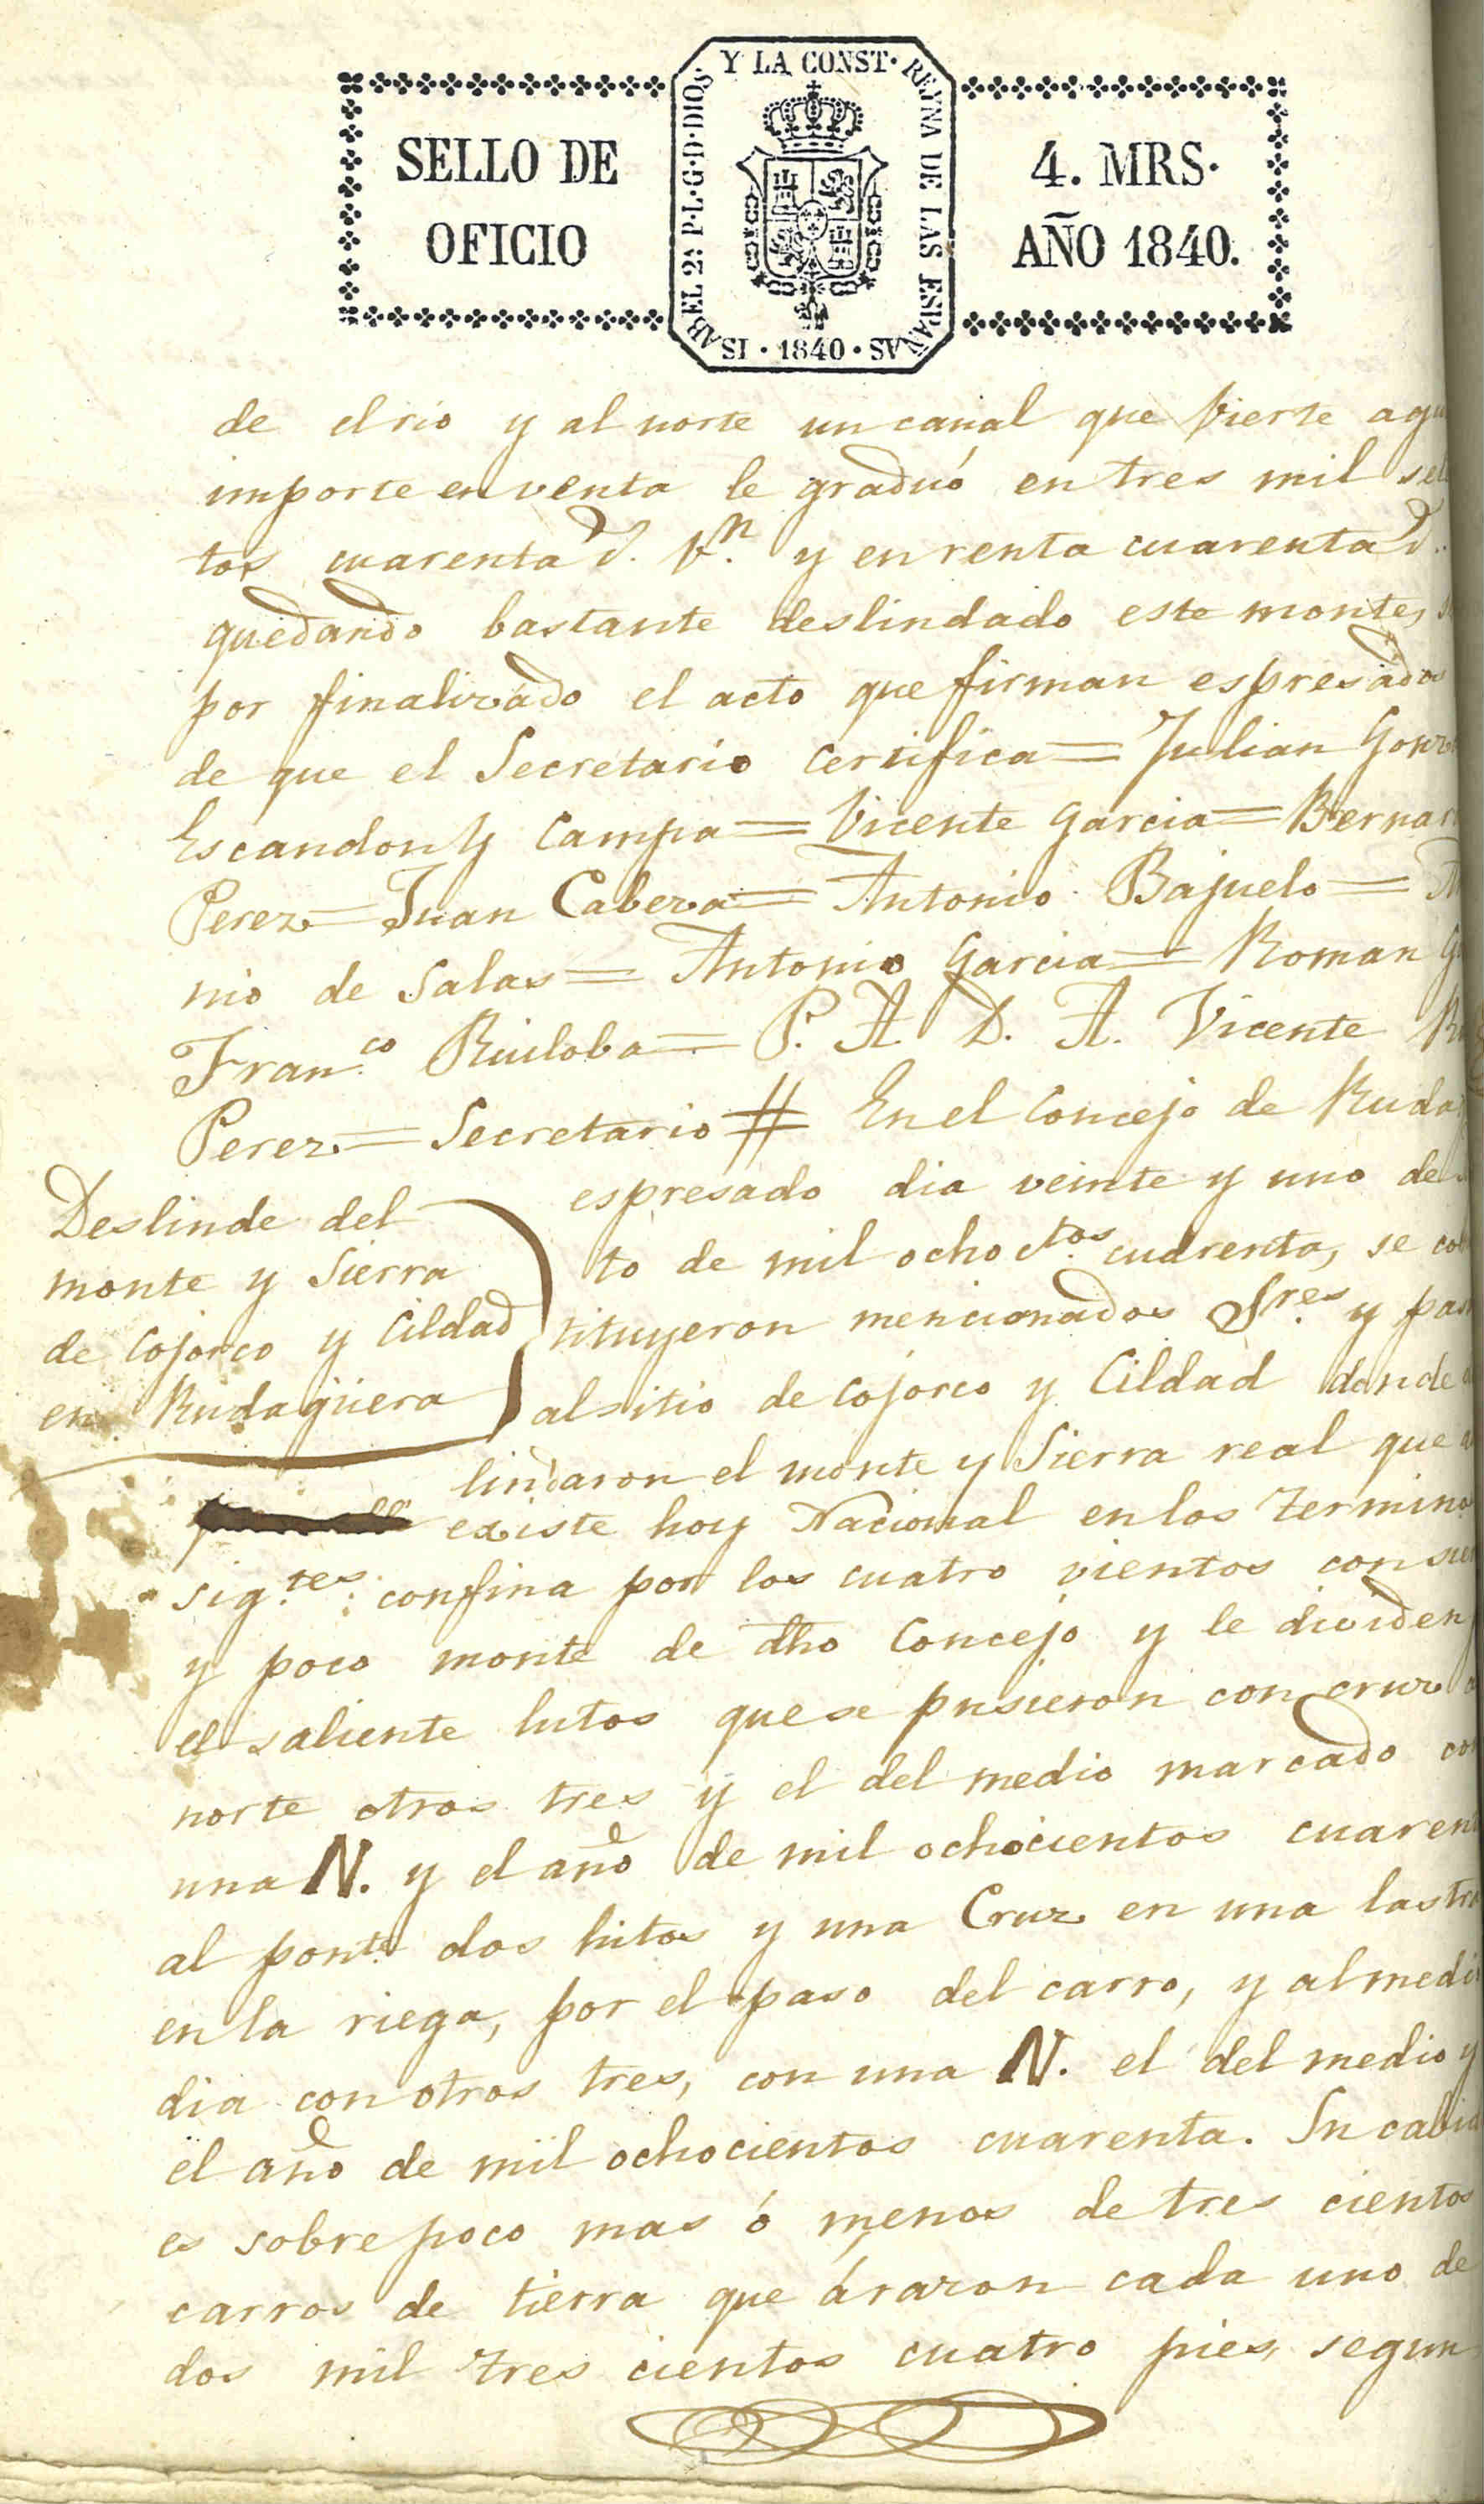 SELLO DE
OFICIO
ISABEL 2ª P·L·G·D·DIOS· Y LA CONST· REYNA DE LAS ESPAÑAS
· 1840 ·
4. MRS·
AÑO 1840.
de el rio y al norte un canal que vierte agu
importe en venta le graduó en tres mil sete
tos cuarenta r.s v.n y en renta cuarenta r.s
quedando bastante deslindado este monte,
por finalizado el acto que firman espresados
de que el Secretario certifica = Julian Gonz
Escandon y Campa = Vicente Garcia = Bernar
Perez = Juan Cabeza = Antonio Bajuelo =
nio de Salas = Antonio Garcia = Roman G
Fran.co Ruiloba = P. A. D. A. Vicente
Perez = Secretario # En el Concejo de Ruda
Deslinde del
monte y Sierra
de Cojorco y Cildad
en Rudagüera
espresado dia veinte y uno de
to de mil ochoc.tos cuarenta, se co
tituyeron mencionados S.res y pas
al sitio de Cojorco y Cildad donde
lindaron el monte y Sierra real que
existe hoy Nacional en los termino
sig.tes: confina por los cuatro vientos con sie
y poco monte de dho Concejo y le dividen
el saliente hitos que se pusieron con cruz
norte otros tres y el del medio marcado con
una N. y el año de mil ochocientos cuaren
al pon.te dos hitos y una Cruz en una lastr
en la riega, por el paso del carro, y al medi
dia con otros tres, con una N. el del medio y
el año de mil ochocientos cuarenta. Su cabid
es sobre poco mas ó menos de tres cientos
carros de tierra que árazon cada uno de
dos mil tres cientos cuatro pies, segun